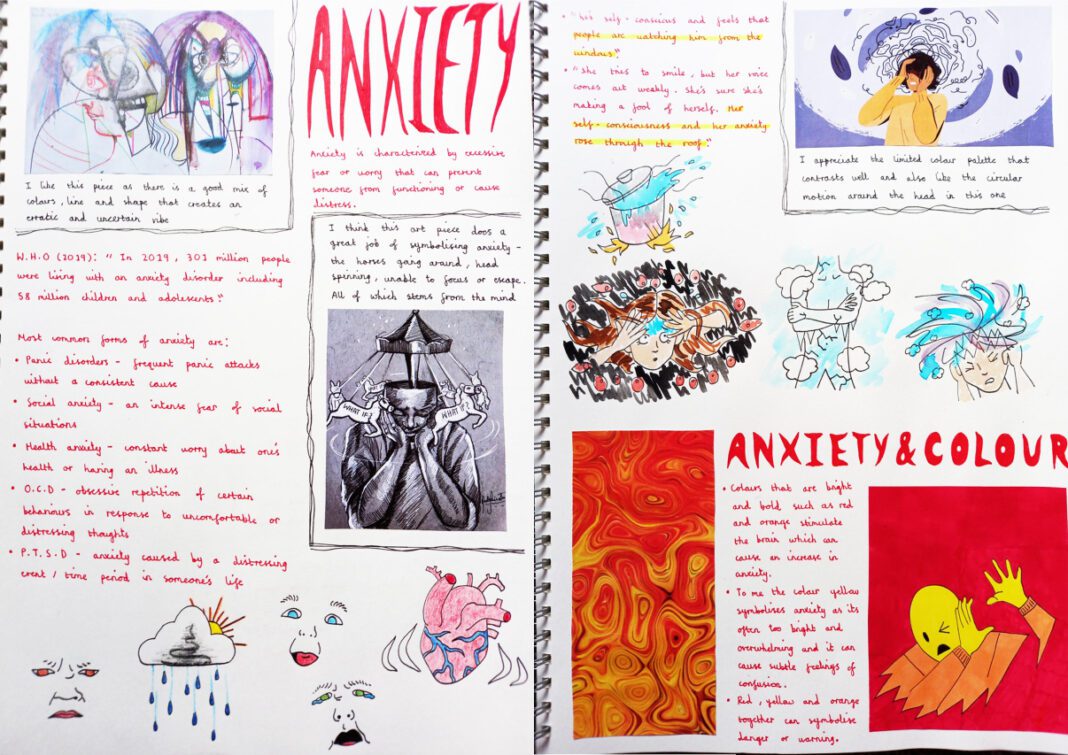 ANXIETY
I like this piece as there is a good mix of
colours, line and shape that creates an
erratic and uncertain vibe
Anxiety is characterised by excessive
fear or worry that can prevent
someone from functioning or cause
distress.
W.H.O (2019): " In 2019, 301 million people
were living with an anxiety disorder including
58 million children and adolescents."
I think this art piece does a
great job of symbolising anxiety -
the horses going around, head
spinning, unable to focus or escape.
All of which stems from the mind
WHAT IF?
WHAT IF?
Most common forms of anxiety are:
• Panic disorders - frequent panic attacks
without a consistent cause
• Social anxiety - an intense fear of social
situations
• Health anxiety - constant worry about one's
health or having an illness
• O.C.D - obsessive repetition of certain
behaviours in response to uncomfortable or
distressing thoughts
• P.T.S.D - anxiety caused by a distressing
event / time period in someone's life
• "He's self-conscious and feels that
people are watching him from the
windows."
• "She tries to smile, but her voice
comes out weakly. She's sure she's
making a fool of herself. Her
self-consciousness and her anxiety
rose through the roof."
I appreciate the limited colour palette that
contrasts well and also like the circular
motion around the head in this one
ANXIETY & COLOUR
• Colours that are bright
and bold such as red
and orange stimulate
the brain which can
cause an increase in
anxiety.
• To me the colour yellow
symbolises anxiety as its
often too bright and
overwhelming and it can
cause subtle feelings of
confusion.
• Red, yellow and orange
together can symbolise
danger or warning.